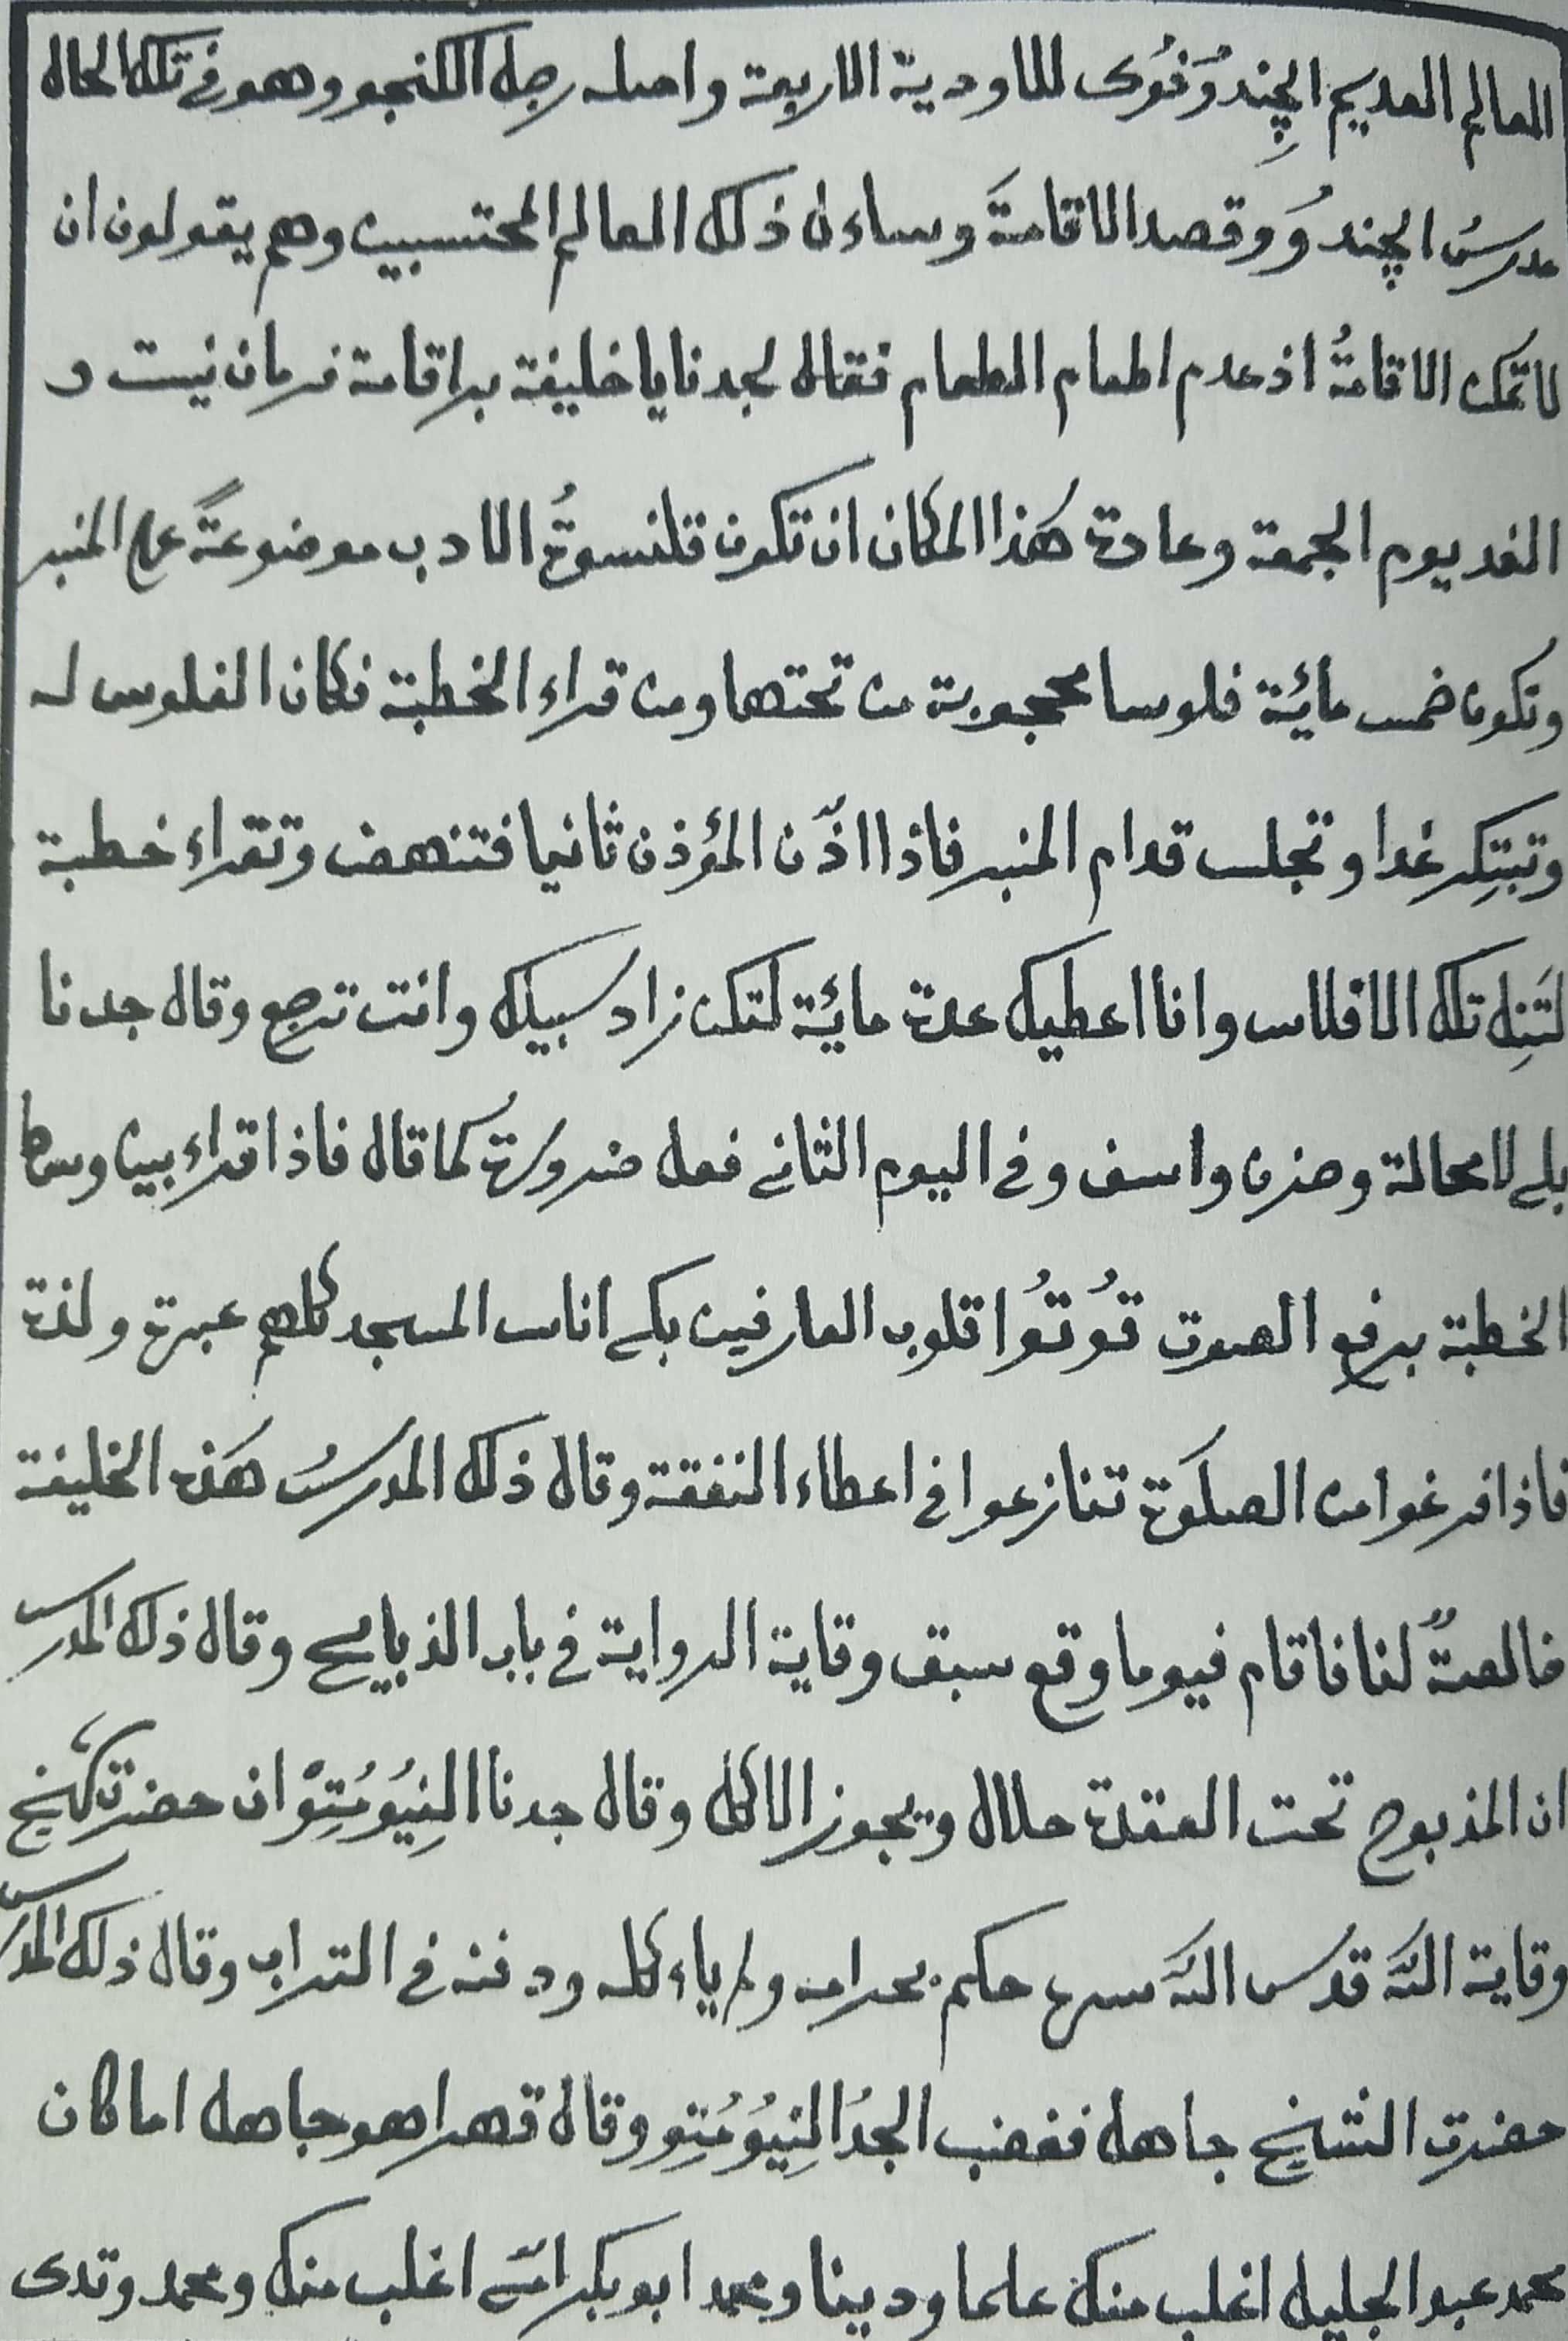 العالم العديم الچِندُوَفُوى للاودية الاربعة واصله رجل الكنجوو وهو فى تلك الحال
مدرسُ الچندُوَ وقصد الاقامةَ وساءل ذلك العالم المحتسبين وهم يقولون ان
لا تمكن الاقامةُ اذ عدم اطعام الطعام فقال لجدنا يا خليفة براقامة فرمان نيست و
الغد يوم الجمعة وعادة هٰذا المكان ان تكون قلنسوةُ الادب موضوعةً على المنبر
وتكون خمس مائة فلوسا محجوبة من تحتها ومن قراء الخطبة فكان الفلوس له
وتبتكِر غدا وتجلس قدام المنبر فاذا اذّن المؤذن ثانيا فتنهض وتقراء خطبة
لتَنِل تلك الافلاس وانا اعطيك عدة مائة لتكن زاد سبيلك وانت ترجع وقال جدنا
بلى لا محالة وحزن واسف وفى اليوم الثانى فعل ضرورة كما قال فاذا قراء بين وساط
الخطبة برفع الصوت قُوتُوا قلوب العارفين بكى اناس المسجد كلهم عبرة ولذة
فاذا فرغوا من الصلٰوة تنازعوا فى اعطاء النفقة وقال ذلك المدرسُ هٰذه الخليفة
خالصةٌ لنا فاقام فيوما وقع سبق وقاية الرواية فى باب الذبايح وقال ذلك المدرس
ان المذبوح تحت العقدة حلال ويجوز الاكل وقال جدنا النِيُومُتِوْ ان حضرت شيخ
وقاية اللّٰه قدس اللّٰه سره حكم بحرامه ولم ياءكله ودفنه فى التراب وقال ذلك المدرس
حضرت الشيخ جاهل فغضب الجدُ النِيُومُتِو وقال قهرا هو جاهل اما كان
محمد عبد الجليل اغلب منك علما ودينا ومحمد ابوبكر امّى اغلب منك ومحمد وتدى